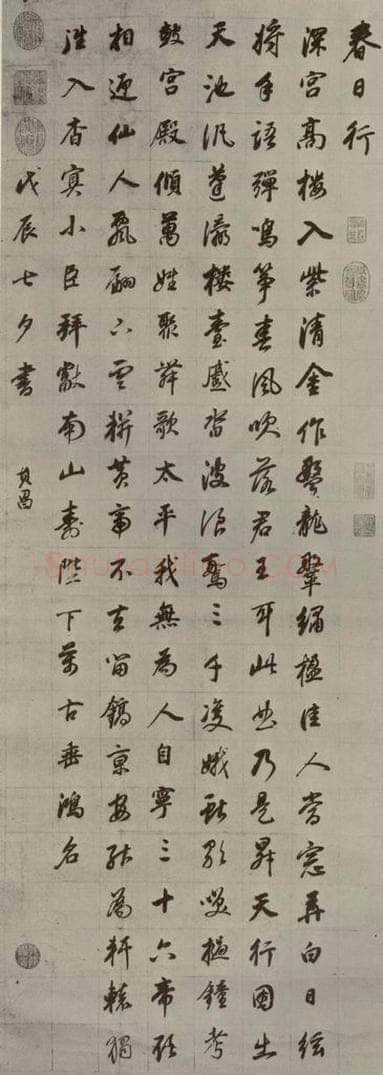 春日行
深宮高樓入紫清金作龍繡楹佳人當窓弄白日絃
將手語彈鳴箏春風吹落君王耳此曲乃是昇天行因出
天池汎蓬瀛樓臺蹙沓波浪驚三千雙蛾獻歌笑撾鐘考
鼓宮殿傾萬姓聚舞歌太平我無為人自寧三十六帝欲
相迎仙人飄翩下雲輧黃帝不去留鎬京安能為軒轅獨
往入杳冥小臣拜獻南山壽陛下萬古垂鴻名
戊辰七夕書
其昌